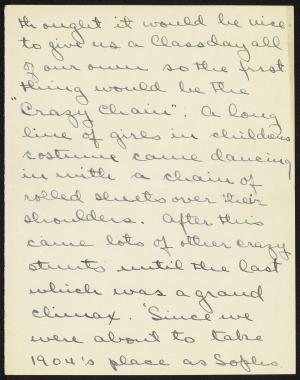 thought it would be nice
to give us a Classday all
of our own so the first
thing would be the
"Crazy Chain". A long
line of girls in childrens
costume came dancing
in with a chain of
rolled sheets over their
shoulders. After this
came lots of other crazy
stunts until the last
which was a grand
climax. "Since we
were about to take
1904's place as Sophs.